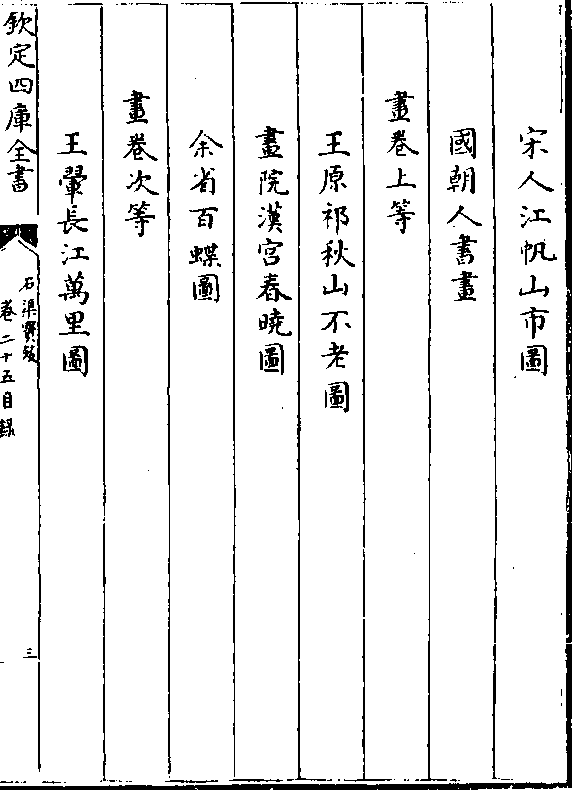 宋人江帆山市圖
國朝人書畫
畫卷上等
王原祁秋山不老圖
畫院漢宫春曉圖
余省百蝶圖
畫卷次等
王翬長江萬里圖
欽定四庫全書
石渠寳笈
卷二十五目録
三